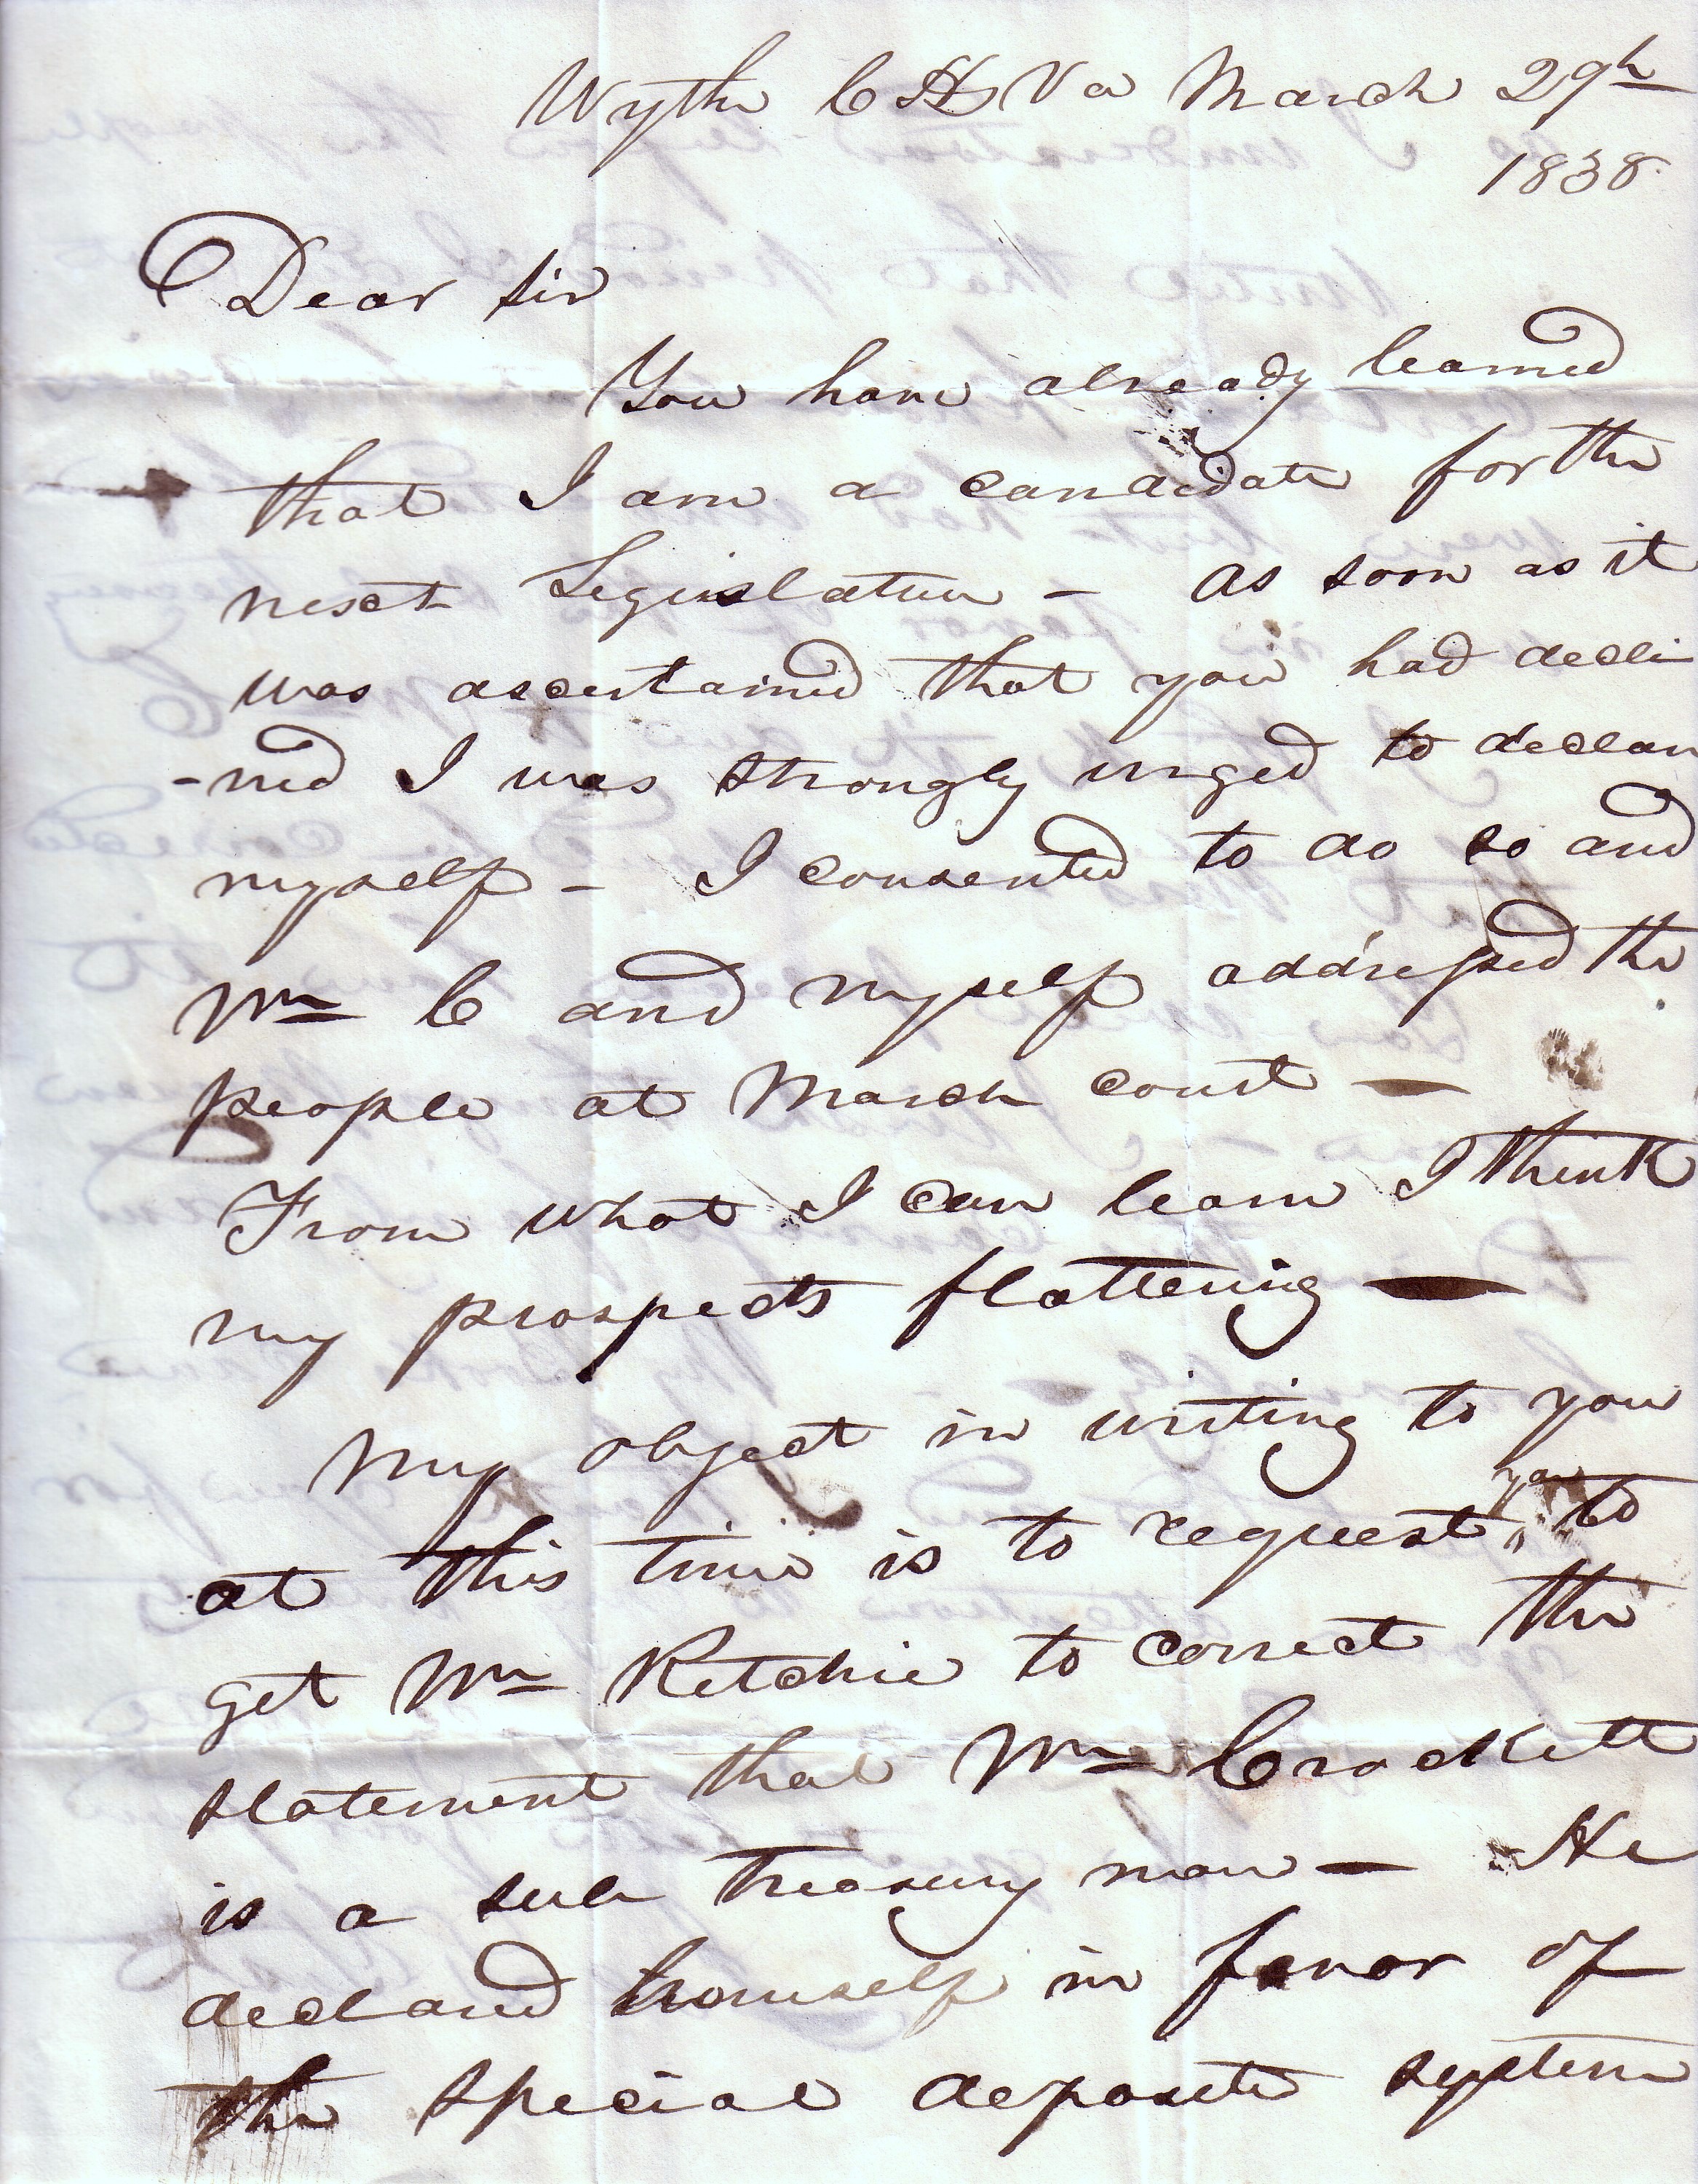 Wythe C H Va March 29th
1838.
Dear Sir
You have already learned
that I am a candidate for the
next Legislature - As soon as it
was ascertained that you had decli
-ned I was strongly urged to declare
myself - I consented to do so and
Mr C and myself addressed the
people at March court —
From what I can learn I think
my prospects flattering —
My object in writing to you
at this time is to request you to
get Mr Ritchie to correct the
statement that Mr Crockett
is a sub Treasury man — He
declared himself in favor of
the special deposite system